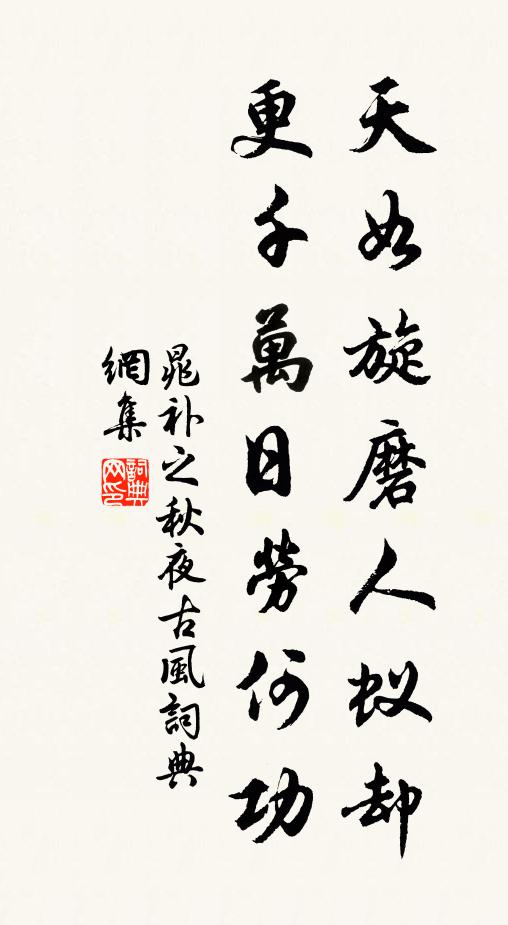 天如旋磨人蚁却
更千萬日勞何功
晁补之秋夜古風詞典
網集
詞典网印